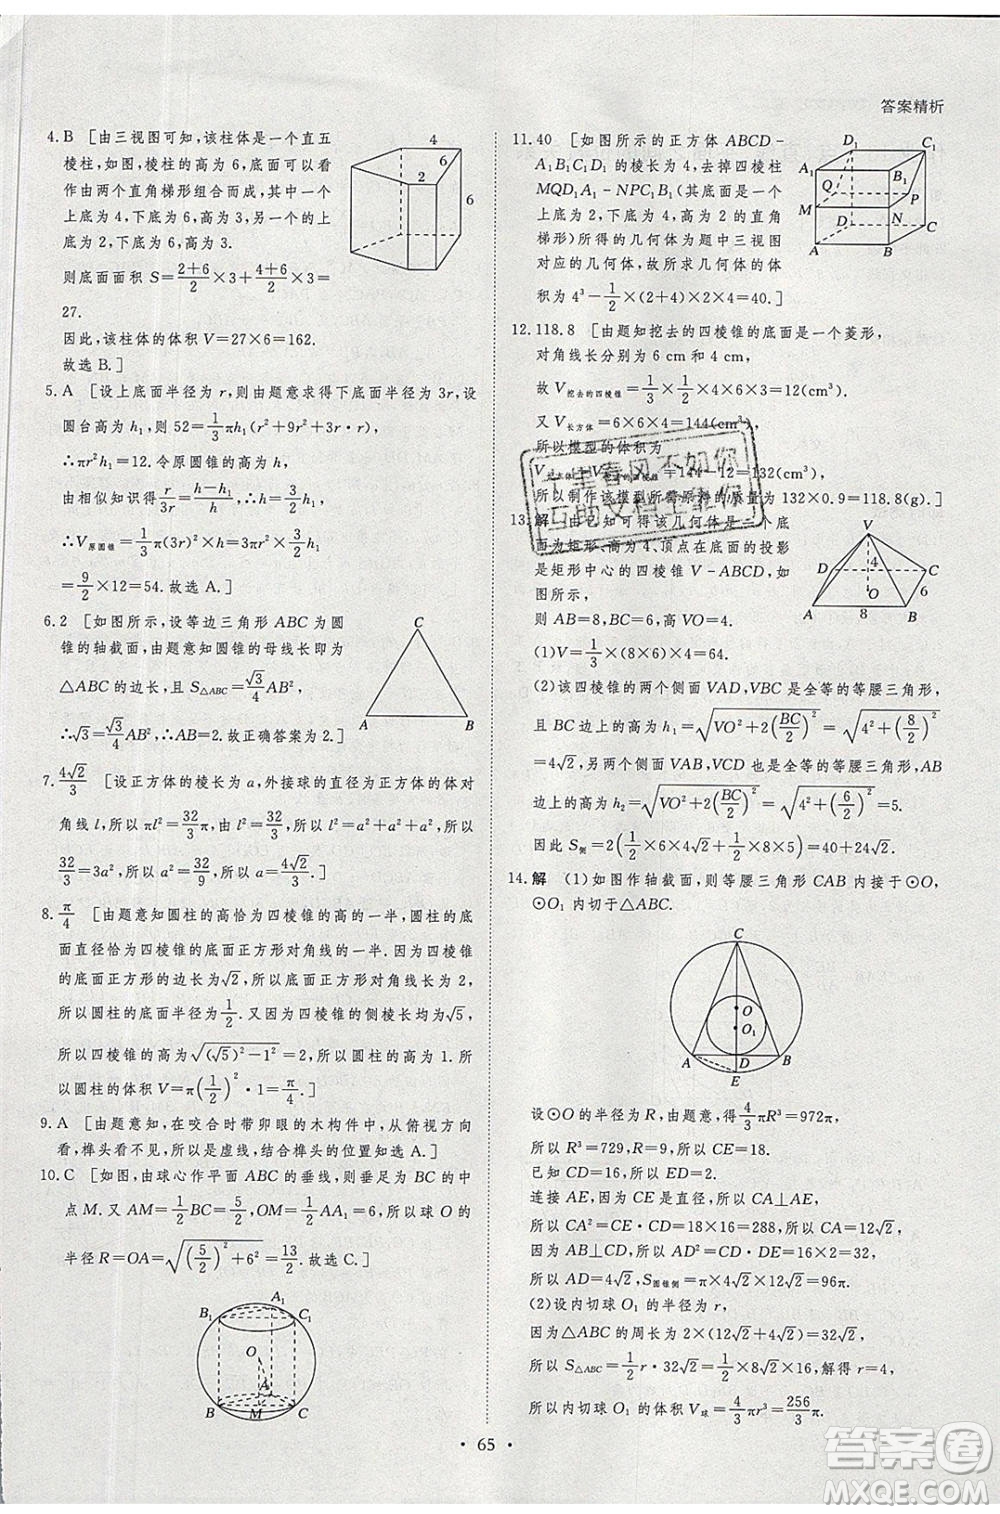 答案精析
4.B [由三视图可知,该柱体是一个直五
棱柱,如图,棱柱的高为6,底面可以看
作由两个直角梯形组合而成,其中一个
上底为4,下底为6,高为3,另一个的
上底为2,下底为6,高为3.
则底面面积 S=(2+6)/2×3+(4+6)/2×3=
27.
因此,该柱体的体积V=27×6=162.
故选B.]
4
2
6
6
5.A [设上底面半径为r,则由题意求得下底面半径为3r,设
圆台高为h₁,则52=1/3πh₁(r²+9r²+3r·r),
∴πr²h₁=12.令原圆锥的高为h,
由相似知识得r/3r=(h-h₁)/h,∴h=3/2h₁,
∴V原圆锥=1/3π(3r)²×h=3πr²×3/2h₁
=9/2×12=54.故选A.]
6.2 [如图所示,设等边三角形ABC为圆
锥的轴截面,由题意知圆锥的母线长即为
△ABC的边长,且S△ABC=√3/4AB²,
∴√3=√3/4AB²,∴AB=2.故正确答案为2.]
C
A
B
7.4√2/3 [设正方体的棱长为a,外接球的直径为正方体的体对
角线l,所以πl²=32/3π,由l²=32/3,所以l²=a²+a²+a²=
32/3,所以a²=32/9,所以a=4√2/3.]
8.π/4 [由题意知圆柱的高恰为四棱锥的高的一半,圆柱的底
面直径恰为四棱锥的底面正方形对角线的一半.因为四棱锥
的底面正方形的边长为√2,所以底面正方形对角线长为2,
所以圆柱的底面半径为1/2.又因为四棱锥的侧棱长均为√5,
所以四棱锥的高为√((√5)²-1²)=2,所以圆柱的高为1.所
以圆柱的体积V=π(1/2)²·1=π/4.]
9.A [由题意知,在咬合时带卯眼的木构件中,从俯视方向
看,榫头看不见,所以是虚线,结合榫头的位置知选A.]
10.C [如图,由球心作平面ABC的垂线,则垂足为BC的中
点M.又AM=1/2BC=5/2,OM=1/2AA₁=6,所以球O的
半径R=OA=√((5/2)²+6²)=13/2.故选C.]
A₁
B₁
C₁
O
A
B
M
C
11.40 [如图所示的正方体ABCD-
A₁B₁C₁D₁的棱长为4,去掉四棱柱
MQD₁A₁-NPC₁B₁(其底面是一个
上底为2,下底为4,高为2的直角
梯形)所得的几何体为题中三视图
对应的几何体,故所求几何体的体
积为4³-1/2×(2+4)×2×4=40.]
D₁
C₁
A₁
B₁
Q
P
M
N
D
C
A
B
12.118.8 [由题知挖去的四棱锥的底面是一个菱形,
对角线长分别为6 cm和4 cm,
故V挖去的四棱锥=1/3×1/2×4×6×3=12(cm³).
又V长方体=6×6×4=144(cm³),
所以模型的体积为
=144-12=132(cm³),
所以制作该模型所需原料的质量为132×0.9=118.8(g).]
13.解 由已知可得该几何体是一个底
面为矩形、高为4、顶点在底面的投影
是矩形中心的四棱锥V-ABCD,
如图所示,
则AB=8,BC=6,高VO=4.
V
D
4
C
O
6
A
8
B
(1)V=1/3×(8×6)×4=64.
(2)该四棱锥的两个侧面VAD,VBC是全等的等腰三角形,
且BC边上的高为h₁=√(VO²+(BC/2)²)=√(4²+(8/2)²)
=4√2,另两个侧面VAB,VCD也是全等的等腰三角形,AB
边上的高为h₂=√(VO²+(BC/2)²)=√(4²+(6/2)²)=5.
因此S侧=2(1/2×6×4√2+1/2×8×5)=40+24√2.
14.解 (1)如图作轴截面,则等腰三角形CAB内接于⊙O,
⊙O₁内切于△ABC.
C
O
O₁
A
D
B
E
设⊙O的半径为R,由题意,得4/3πR³=972π,
所以R³=729,R=9,所以CE=18.
已知CD=16,所以ED=2.
连接AE,因为CE是直径,所以CA⊥AE,
所以CA²=CE·CD=18×16=288,所以CA=12√2.
因为AB⊥CD,所以AD²=CD·DE=16×2=32,
所以AD=4√2,S圆锥侧=π×4√2×12√2=96π.
(2)设内切球O₁的半径为r,
因为△ABC的周长为2×(12√2+4√2)=32√2,
所以S△ABC=1/2r·32√2=1/2×8√2×16,解得r=4,
所以内切球O₁的体积V球=4/3πr³=256/3π.
• 65 •
答案圈
MXQE.COM